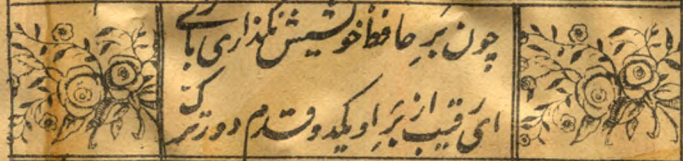 چون بَرِ حافظ خویشش نگذاری باری
ای رقیب از بَرِ او یکدو قدم دورترک